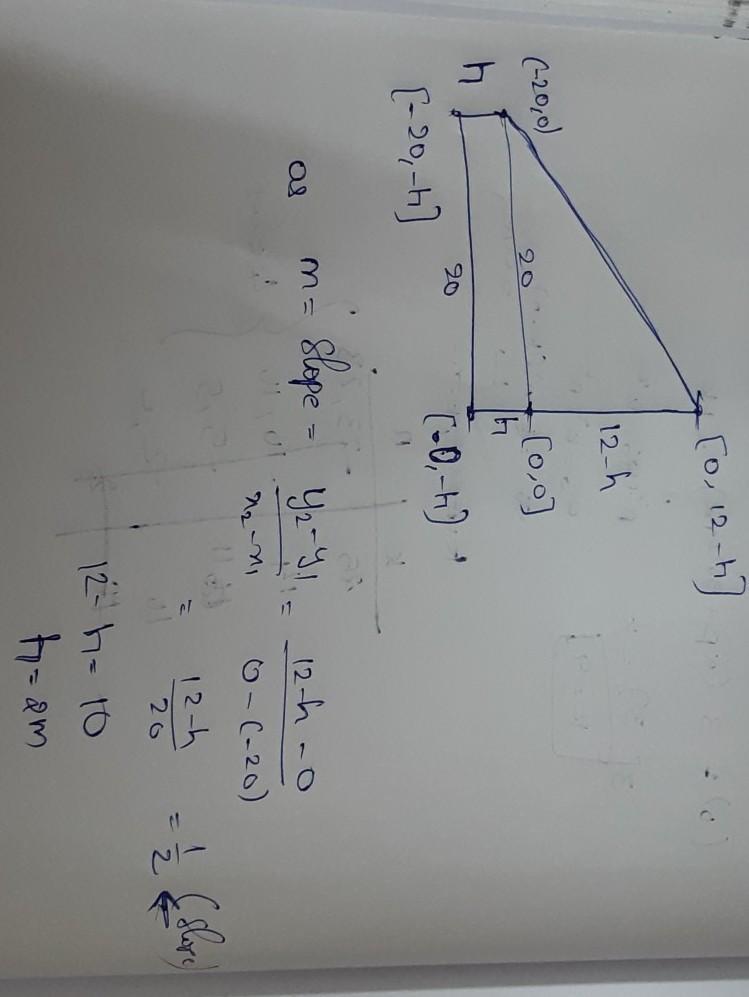 [0, 12-h]
12-h
(-20,0)
20
[0,0]
h
h
20
[-20,-h]
[0,-h]
as m = slope = y₂-y₁/x₂-x₁ = 12-h-0/0-(-20)
= 12-h/20 = 1/2 ← (slope)
12-h = 10
h = 2m